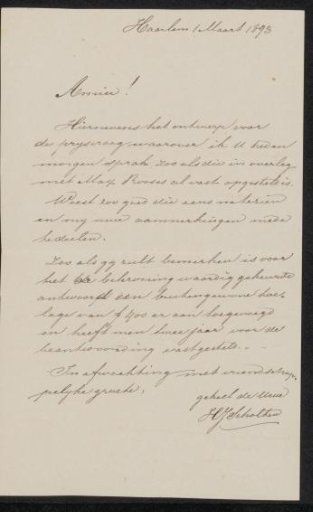 Haarlem 1 Maart 1893
Amice!
Hiernevens het ontwerp voor
de prysvraag waarover ik U heden
morgen sprak zooals die in overleg
met Max Rooses al vast opgesteld is.
Weest zoo goed die eens na te zien
en my uwe aanmerkingen mede
te deelen.
Zoo als gy zult bemerken is voor
het bekroning waardig gekeurde
antwoord een buitengewone toe-
lage van f 400 er aan toegevoegd
en heeft men twee jaar voor de
beantwoording vastgesteld. -
In afwachting met vriendschap-
pelyke groete,
geheel de Uwe
HJ Scholten